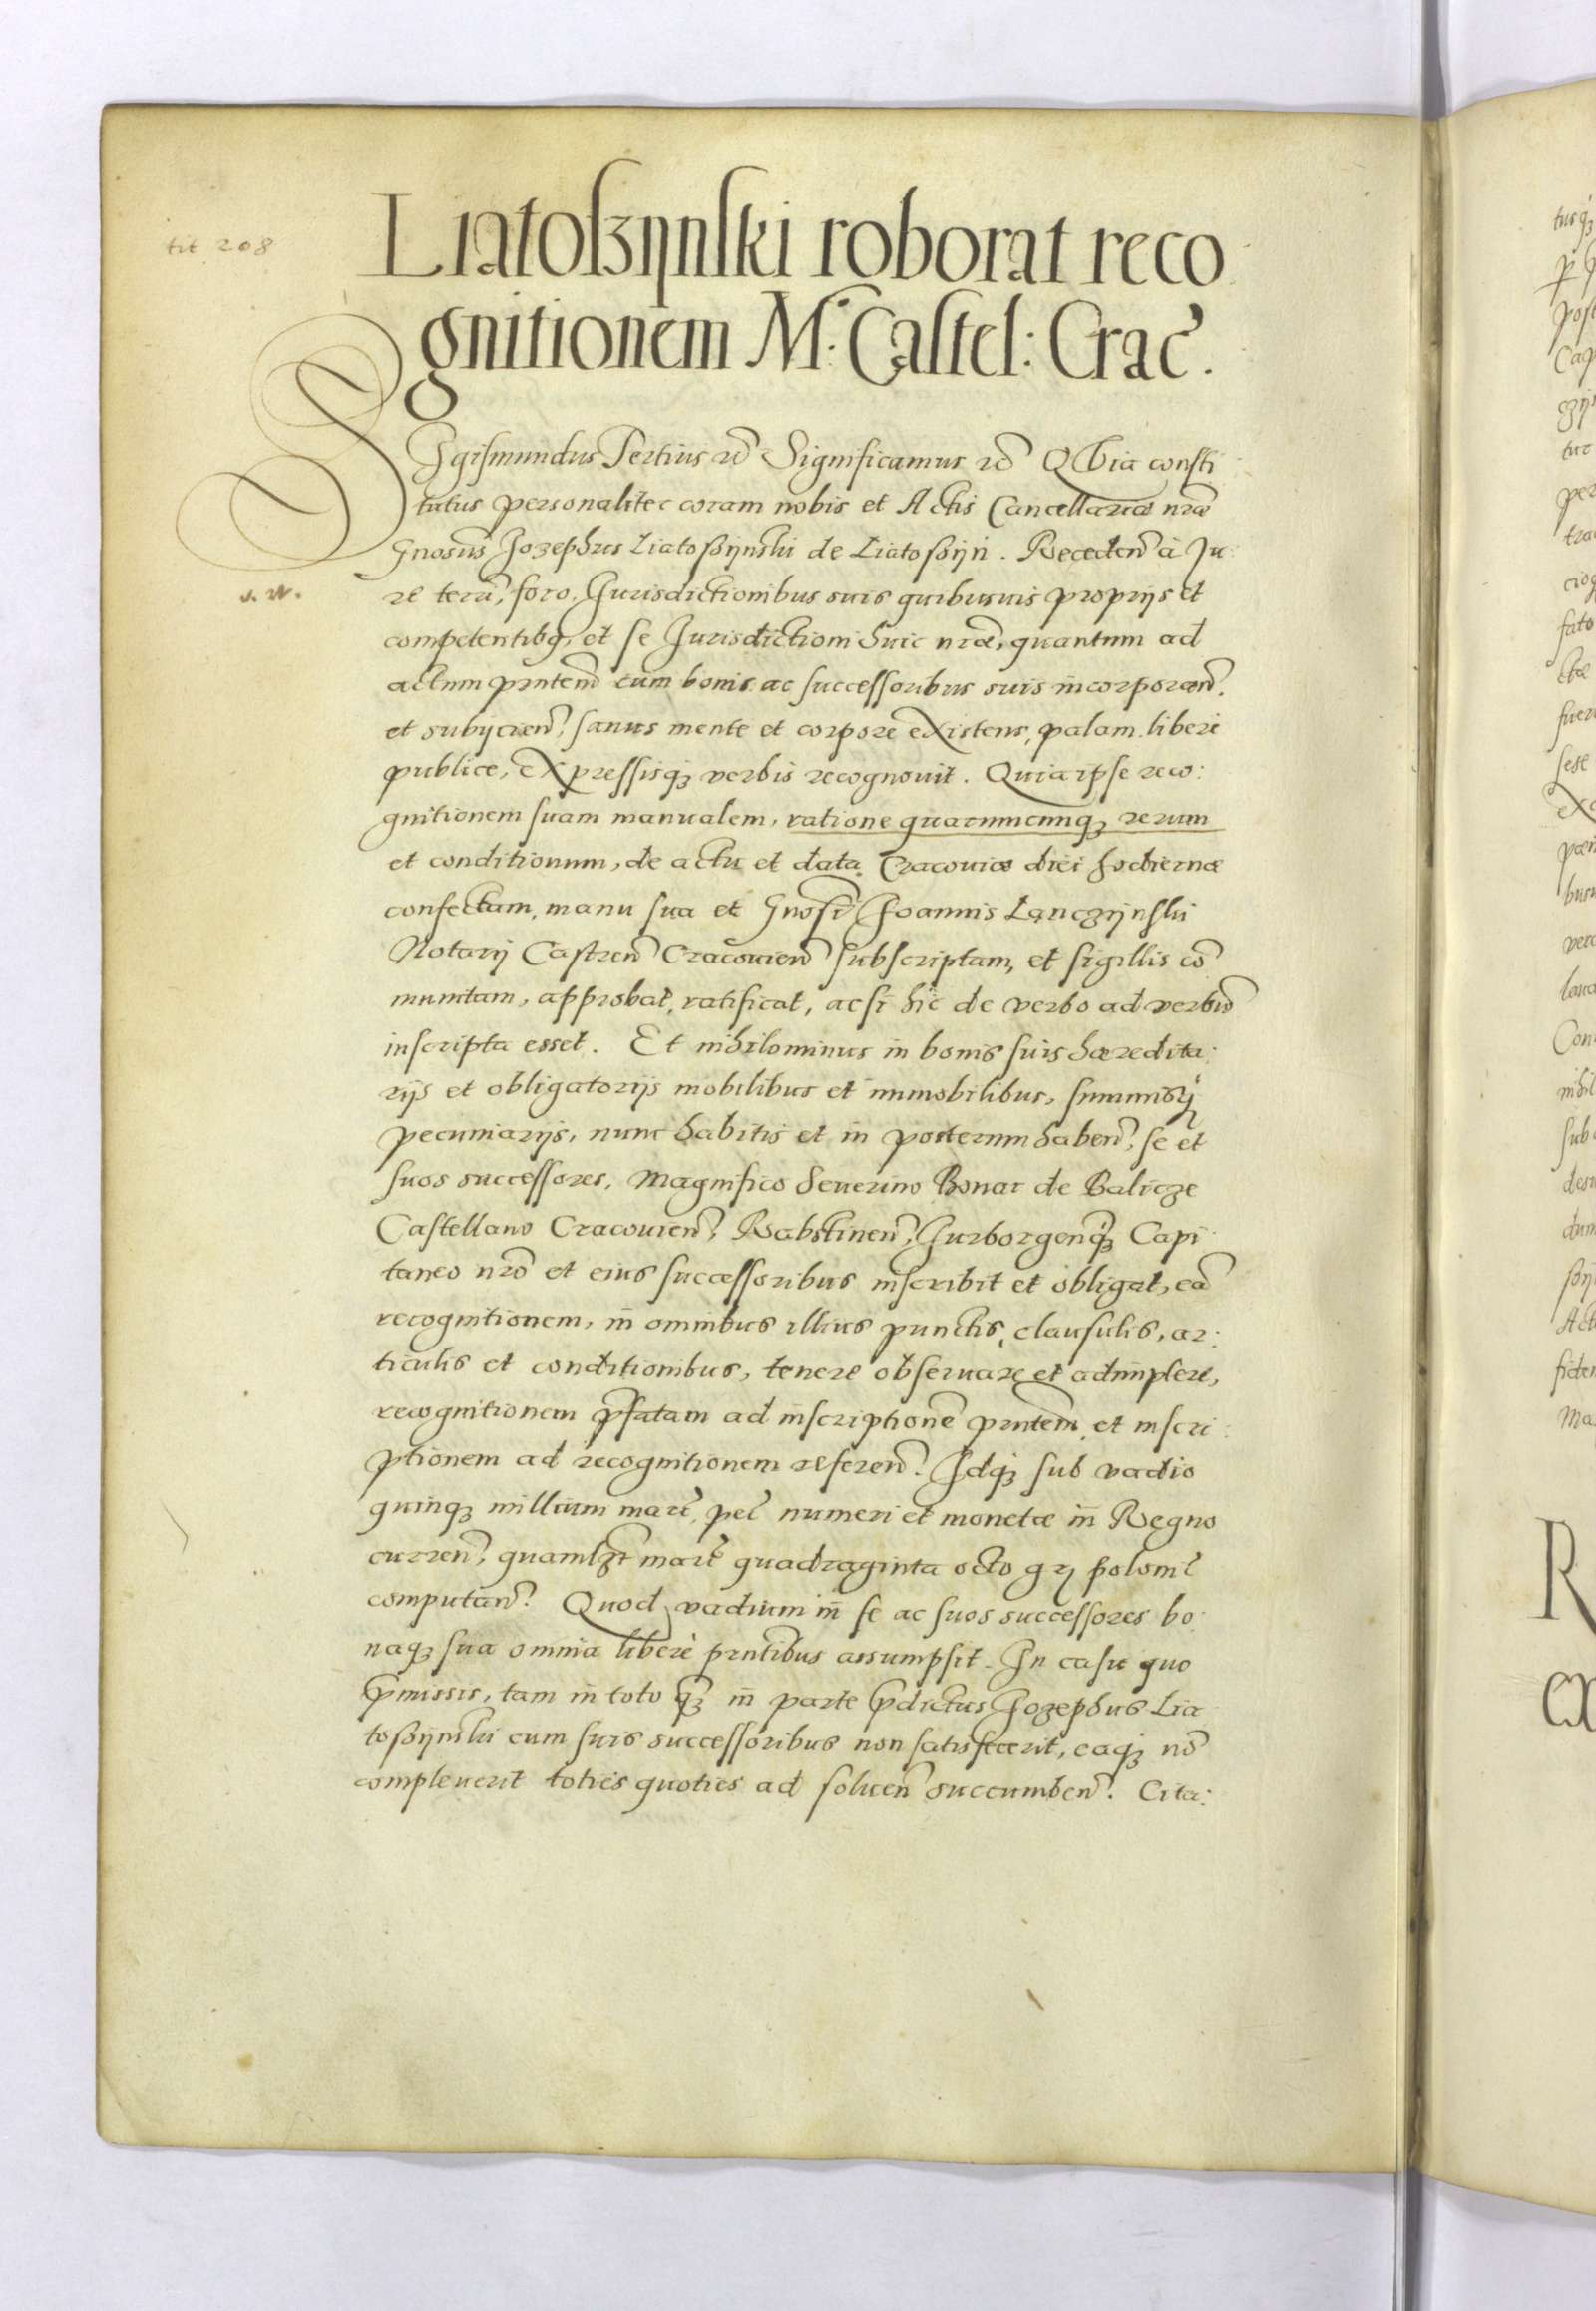 tit 208
Liatoszijnski roborat reco
gnitionem M: Castel: Crac.
SIgismundus Tertius etc Significamus etc QVia consti
tutus personaliter coram nobis et Actis Cancellariæ nræ
Gnosus Jozephus Liatoszijnski de Liatoszijn. Receden à Ju:
re terri, foro, Jurisdictionibus suis quibusuis proprijs et
v. w.
competentibq, et se Jurisdictioni huic nræ, quantum ad
actum pnten cum bonis ac successoribus suis incorporan.
et subijcien, sanus mente et corpore existens, palam libere
publice, expressisq verbis recognouit. Quia ipse reco:
gnitionem suam manualem, ratione quarumcunq rerum
et conditionum, de actu et data Cracouiæ diei hodiernæ
confectam, manu sua et Gnosi Joannis Lanczijnski
Notarij Castren Cracouien subscriptam, et sigillis co
munitam, approbat, ratificat, acsi hic de verbo ad verbu
inscripta esset. Et nihilominus in bonis suis hæredita:
rijs et obligatorijs mobilibus et immobilibus, summisq
pecuniarijs, nunc habitis et in posterum haben, se et
suos successores, Magnifico Seuerino Bonar de Balicze
Castellano Cracouien, Rabstinen, Zurborgenq Capi
taneo nro et eius successoribus inscribit et obligat, ea
recognitionem, in omnibus illius punctis, clausulis, ar:
ticulis et conditionibus, tenere obseruare et adimplere,
recognitionem pfatam ad inscriptione pntem, et inscri:
ptionem ad recognitionem referen. Idq sub vadio
quinq millium marc, pec numeri et monetæ in Regno
curren, quamlzt marc quadraginta octo gr polonic
computan. Quod vadium in se ac suos successores bo:
naq sua omnia liberè pntibus assumpsit. In casu quo
pmissis, tam in toto q in parte pdictus Jozephus Lia
toszijnski cum suis successoribus non satisfecerit, eaq no
compleuerit toties quoties ad soluen succumben. Cita: